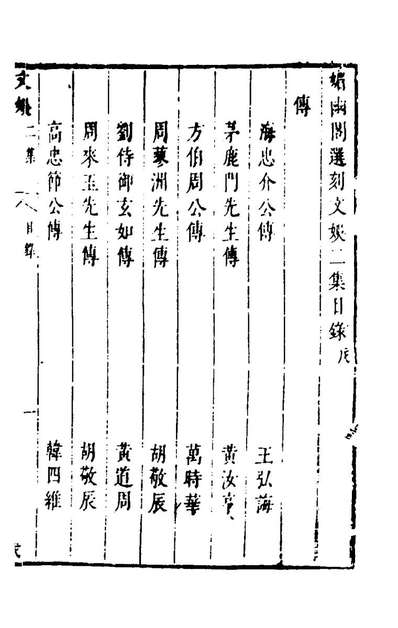 媚幽閣選刻文娛二集目錄
傳
海忠介公傳 王弘誨
茅鹿門先生傳 黃汝亨
方伯周公傳 萬時華
周蓼洲先生傳 胡敬辰
劉侍御玄如傳 黃道周
周來玉先生傳 胡敬辰
高忠節公傳 韓四維
文娛 二集 目錄 一